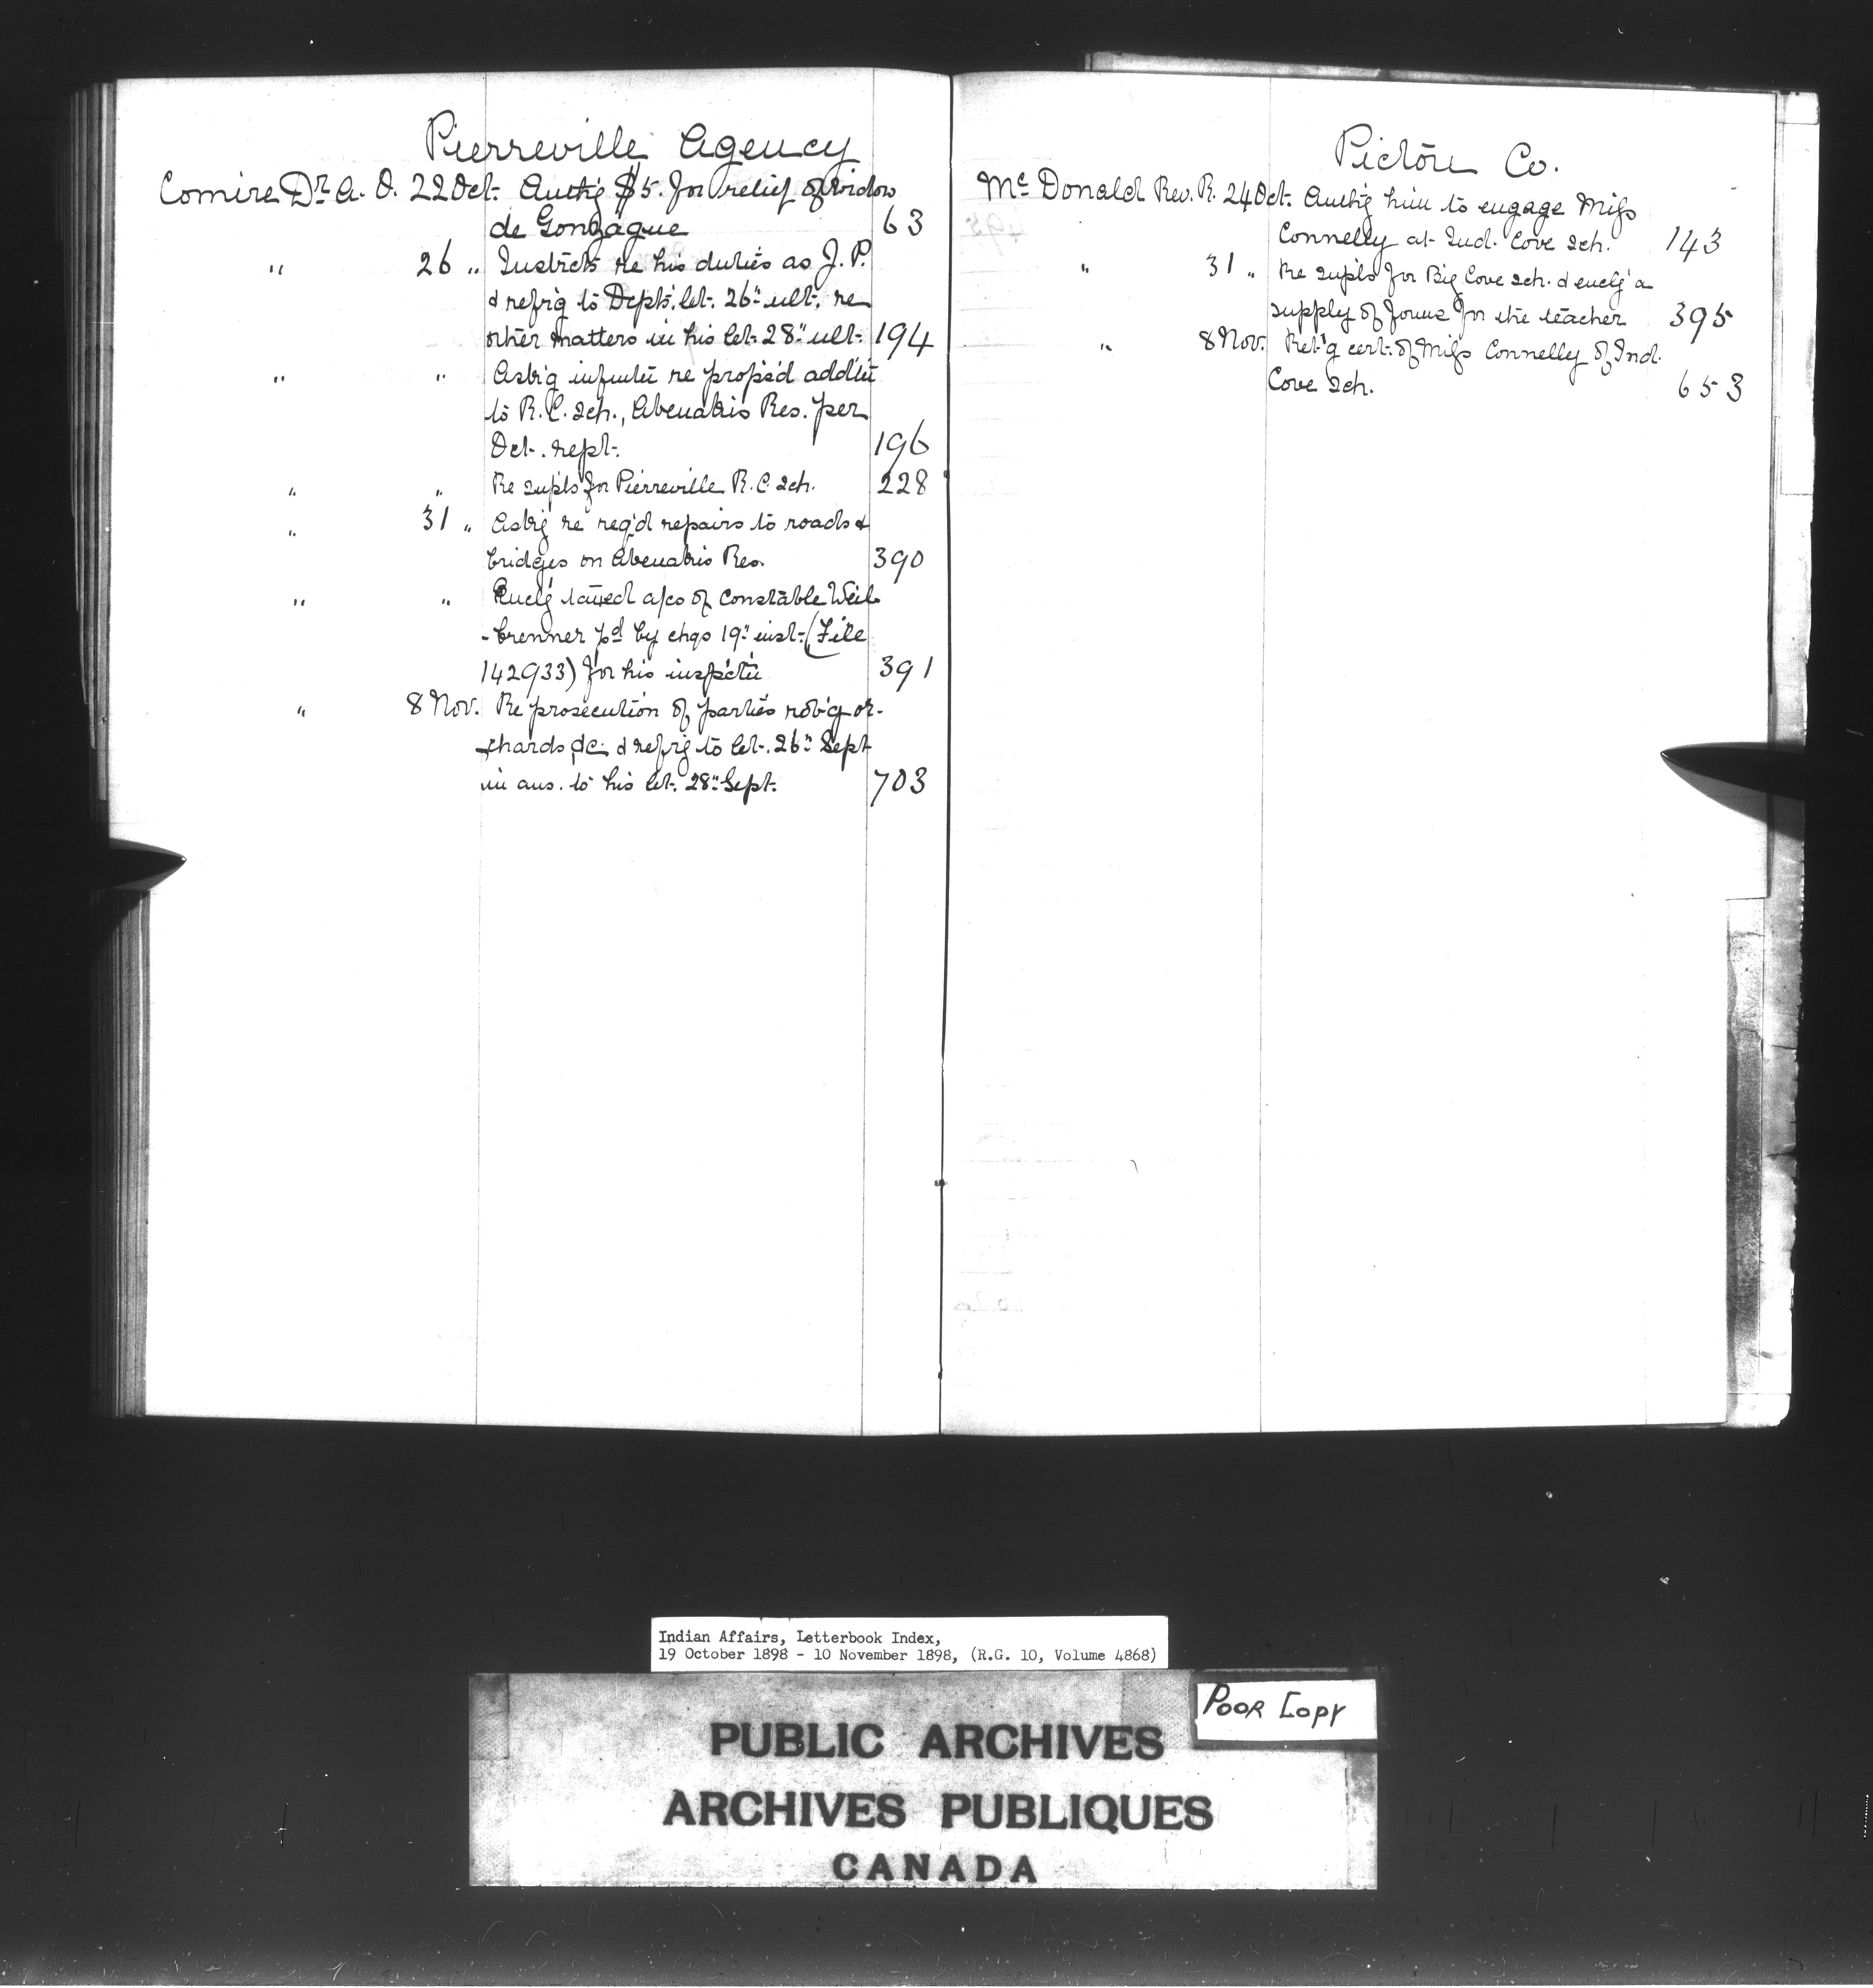 Pierreville Agency
Comire Dr. A. O. 22 Oct. Auth'g $5. for relief of widow
de Gonzague 63
" 26 " Instrcts re his duties as J. P.
& refr'g to Dept's. let. 26" ult. re
other matters in his let. 28" ult. 194
" " Ask'g infmtn re prop's'd addt'n
to R. C. Sch., Abenakis Res. per
Oct. rept. 196
" " Re supls for Pierreville R. C. Sch. 228
" 31 " Ask'g re req'd repairs to roads &
bridges on Abenakis Res. 390
" " Encl'g taxed a/cs of Constable Weil-
-brenner pd by chqs 19" inst. (File
142933) for his inspct'n 391
" 8 Nov. Re prosecution of parties rob'g or-
-chards &c. & refr'g to let. 26" Sept
in ans. to his let. 28" Sept. 703
Pictou Co.
Mc Donald Rev. R. 24 Oct. Auth'g him to engage Miss
Connelly at Ind. Cove Sch. 143
" 31 " Re supls for Big Cove Sch. & encl'g a
supply of forms for the teacher 395
" 8 Nov. Ret'g cert. of Miss Connelly of Ind.
Cove Sch. 653
Indian Affairs, Letterbook Index,
19 October 1898 - 10 November 1898, (R.G. 10, Volume 4868)
POOR COPY
PUBLIC ARCHIVES
ARCHIVES PUBLIQUES
CANADA